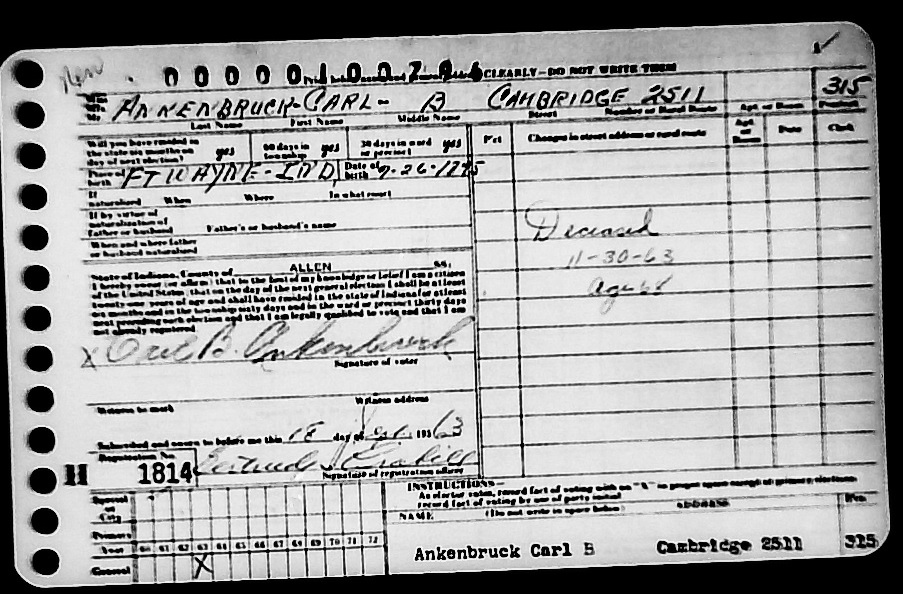 New
CLEARLY—DO NOT WRITE THEM
ANKENBRUCK-CARL- B CAMBRIDGE 2511 315
Last Name First Name Middle Name Street Number or Rural Route Apt. or Room Precinct
Will you have resided in the state six months on day of next election? yes 60 days in township yes 30 days in ward or precinct yes
Pct Changes in street address or rural route Apt. or Room Date Clerk
Place of birth FT WAYNE-IND Date of birth 7-26-1895
If naturalized When Where In what court
If by virtue of naturalization of father or husband Father's or husband's name
When and where father or husband naturalized
Deceased
11-30-63
Age 68
State of Indiana, County of ALLEN SS:
I hereby swear (or affirm) that to the best of my knowledge or belief I am a citizen
of the United States; that on the day of the next general election I shall be at least
twenty-one years of age and shall have resided in the state of Indiana for at least
six months and in the township sixty days and in the ward or precinct thirty days
next preceding such election and that I am legally qualified to vote and that I am
not already registered.
X Carl B. Ankenbruck
Signature of voter
Witness to mark Witness address
Subscribed and sworn to before me this 18 day of 1963
Registration No.
H 1814 Gertrude
Signature of registration officer
INSTRUCTIONS—
NAME (Do not write in space below) ADDRESS Pct.
Special or City
Primary
Year 60 61 62 63 64 65 66 67 68 69 70 71 72
General X
Ankenbruck Carl B Cambridge 2511 315